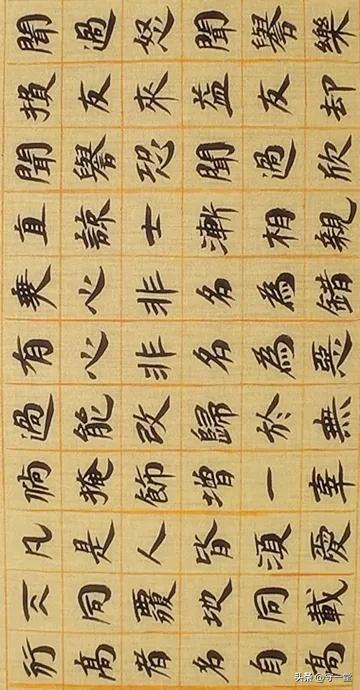 聞過怒聞譽樂
損友來益友却
聞譽恐聞過欣
直諒士漸相親
無心非名為錯
有心非名為惡
過能改歸於無
倘掩飾增一辜
凡是人皆須愛
天同覆地同載
行高者名自高
头条 @守一堂